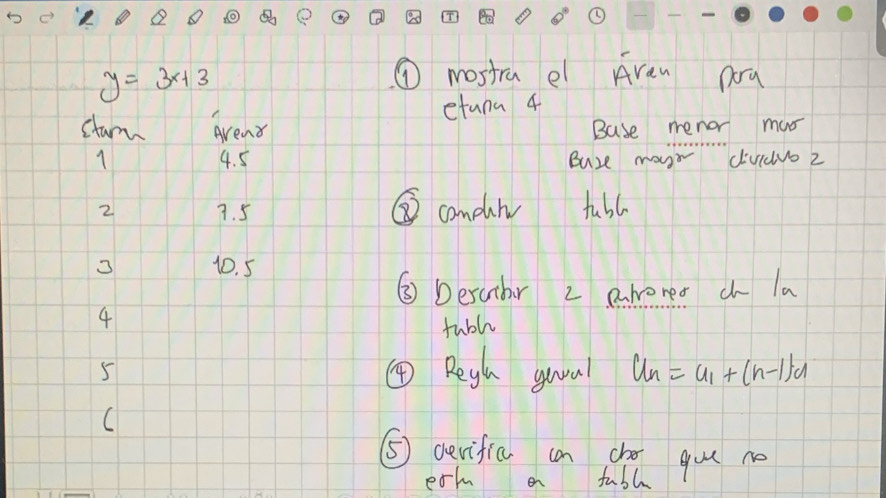 y = 3x+3
Etapa Área
1 4.5
2 7.5
3 10.5
4
5
6
① mostra el Área para
etapa 4
Base menor mas
Base mayor dividido 2
② completar tabla
③ Describir 2 patrones de la
tabla
④ Regla general Un = u1 + (n-1)d
⑤ verifica con dato que no
esta en tabla